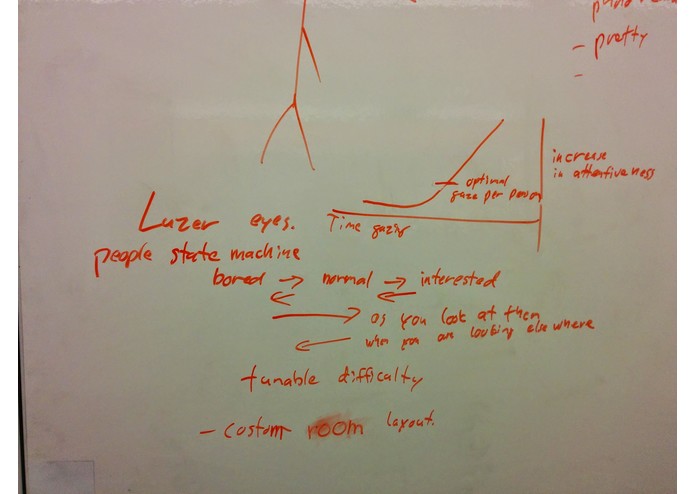 - pretty
-
increase
in attentiveness
optimal
gaze per person
Time gazing
Luzer eyes.
people state machine
bored → normal → interested
← ←
→ as you look at them
← when you are looking elsewhere
tunable difficulty
- custom room layout.